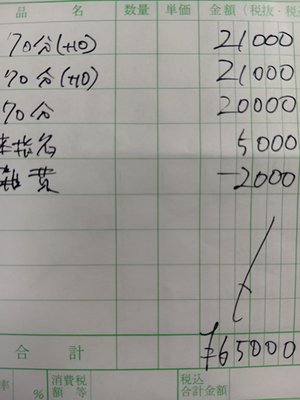 品 名 数量 単価 金額(税抜・税
70分(+10) 21000
70分(+10) 21000
70分 20000
本指名 5000
雑費 -2000
合 計 ¥65000
率 % 消費税 税込
額 等 合計金額